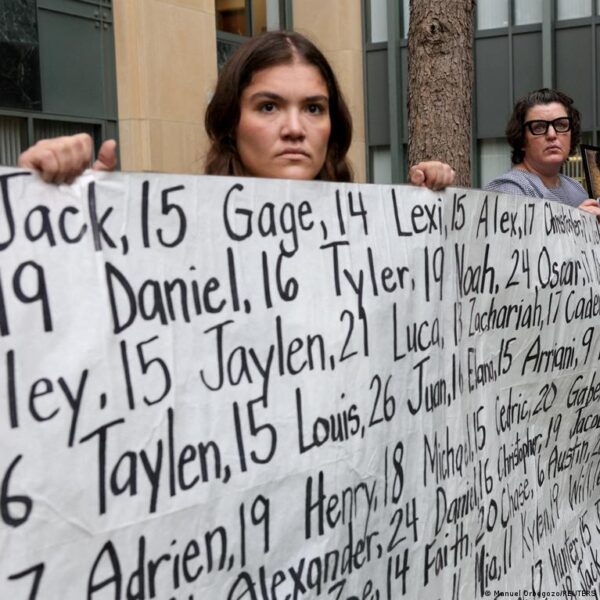 Jack, 15 Gage, 14 Lexi, 15 Alex, 17
19 Daniel, 16 Tyler, 19 Noah, 24 Oscar,
ley, 15 Jaylen, 21 Luca, 13 Zachariah, 17 Caden
6 Taylen, 15 Louis, 26 Juan, Elena, 15 Arriani, 9
Adrien, 19 Henry, 18 Michael, 15 Cedric, 20 Gabe
Alexander, 24 Daniel, 16 Christopher, 19 Jacob
14 Faith, 20 Chase, 6 Austin,
Mia, 11 Kylen, 19
17 Hunter, 15
© Manuel Orbegozo/REUTERS